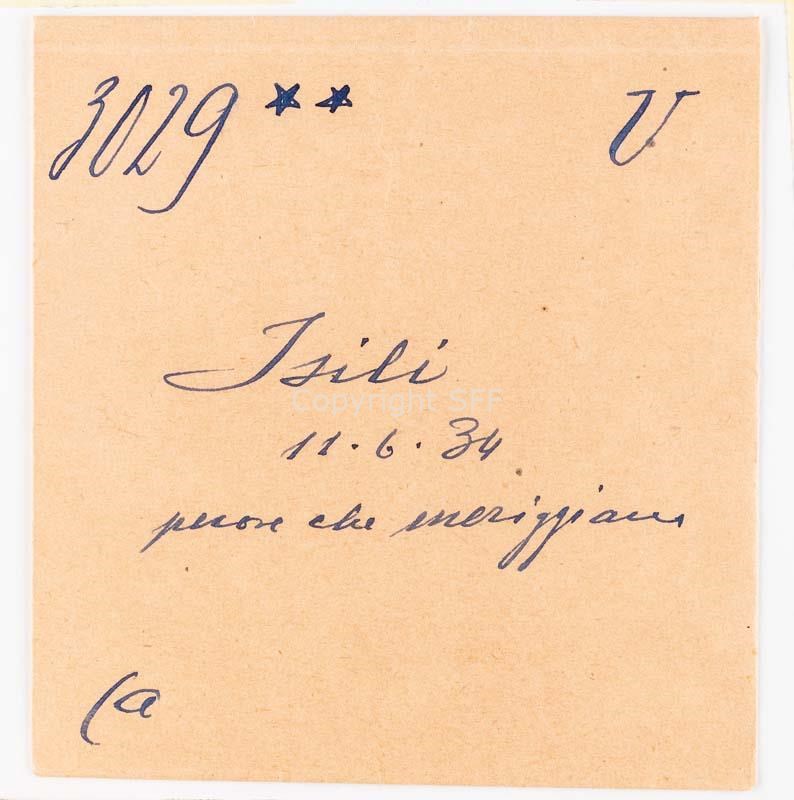 3029 ** V
Isili
Copyright SFF
11.6.34
pecore che meriggiano
(a